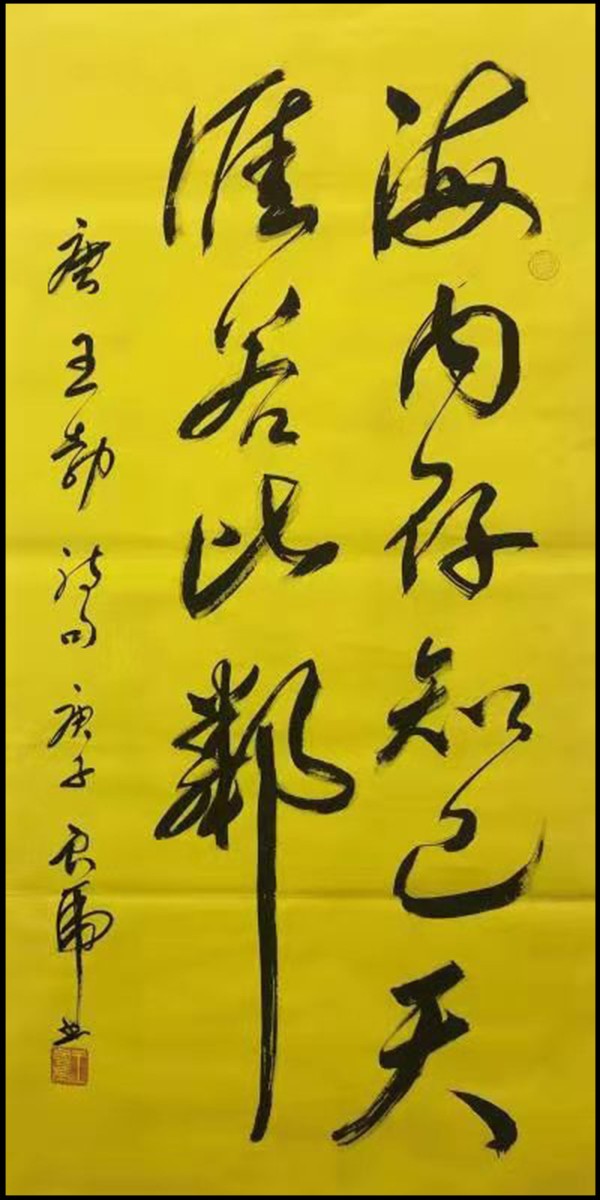 海内存知己天
涯若比鄰
唐王勃诗句庚子良虎书